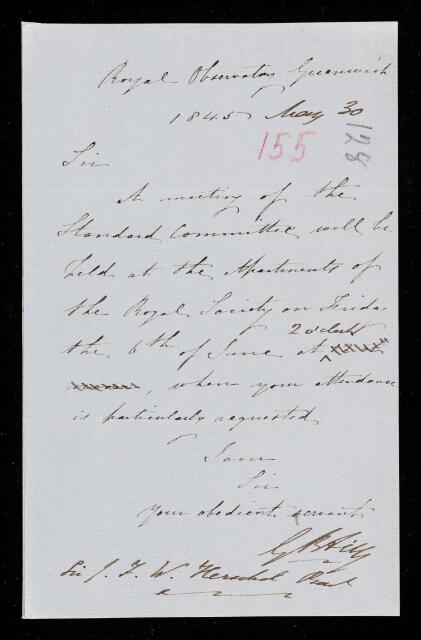 Royal Observatory Greenwich
1845 May 30
155
128
Sir
A meeting of the
Standard Committee will be
held at the Apartments of
the Royal Society on Friday
2 o'clock
the 6th of June at
, when your attendance
is particularly requested
I am
Sir
Your obedient servant
G B Airy
Sir J. F. W. Herschel Bart